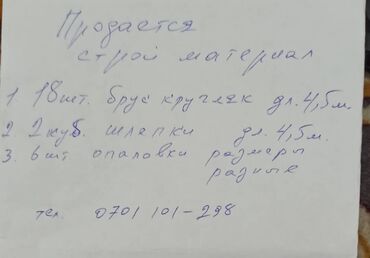 Продается
строй материал
1 18шт. брус кругляк дл. 4,5м.
2. 2куб. шлапки дл. 4,5м.
3. 6 шт опаловки размеры
разные
тел. 0701 101-298